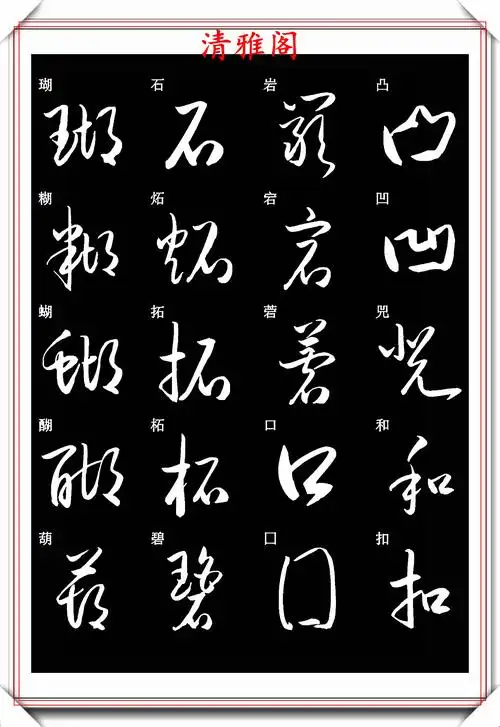 清雅阁
瑚 石 岩 凸
瑚 石 岩 凸
糊 炻 宕 凹
糊 炻 宕 凹
蝴 拓 菪 兕
蝴 拓 菪 兕
醐 柘 口 和
醐 柘 口 和
葫 碧 囗 扣
葫 碧 囗 扣